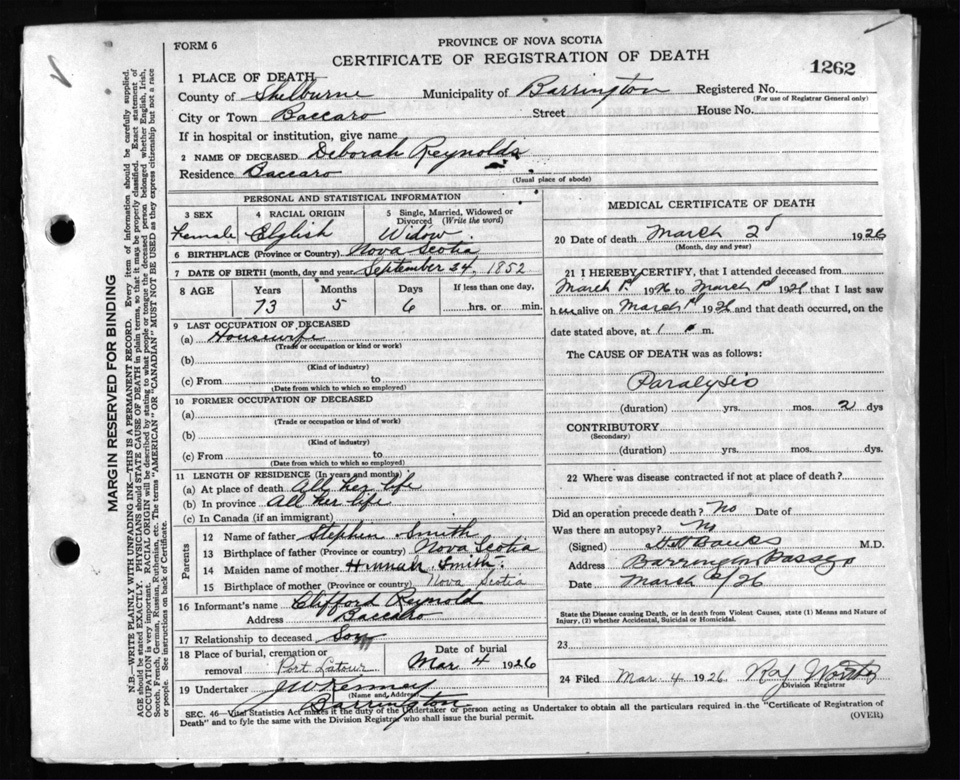 FORM 6
PROVINCE OF NOVA SCOTIA
CERTIFICATE OF REGISTRATION OF DEATH
1262
1 PLACE OF DEATH
County of Shelburne Municipality of Barrington Registered No.
(For use of Registrar General only)
City or Town Baccaro Street House No.
If in hospital or institution, give name
2 NAME OF DECEASED Deborah Reynolds
Residence Baccaro
(Usual place of abode)
PERSONAL AND STATISTICAL INFORMATION
3 SEX 4 RACIAL ORIGIN 5 Single, Married, Widowed or Divorced (Write the word)
Female Elglish Widow
6 BIRTHPLACE (Province or Country) Nova Scotia
7 DATE OF BIRTH (month, day and year) September 24, 1852
8 AGE Years Months Days If less than one day,
73 5 6 hrs. or min.
9 LAST OCCUPATION OF DECEASED
(a) Housewife
(Trade or occupation or kind of work)
(b)
(Kind of industry)
(c) From to
(Date from which to which so employed)
10 FORMER OCCUPATION OF DECEASED
(a)
(Trade or occupation or kind of work)
(b)
(Kind of industry)
(c) From to
(Date from which to which so employed)
11 LENGTH OF RESIDENCE (In years and months)
(a) At place of death All her life
(b) In province All her life
(c) In Canada (if an immigrant)
Parents
12 Name of father Stephen Smith
13 Birthplace of father (Province or country) Nova Scotia
14 Maiden name of mother Hinnah Smith
15 Birthplace of mother (Province or country) Nova Scotia
16 Informant's name Clifford Reynold
Address Baccaro
17 Relationship to deceased Son
18 Place of burial, cremation or removal Port Latour Date of burial Mar 4 1926
19 Undertaker J W Kenney
(Name and Address)
Barrington
MEDICAL CERTIFICATE OF DEATH
20 Date of death March 2 1926
(Month, day and year)
21 I HEREBY CERTIFY, that I attended deceased from
March 1st 1926 to March 1926 that I last saw
her alive on March 1926 and that death occurred, on the
date stated above, at 1 m.
The CAUSE OF DEATH was as follows:
Paralysis
(duration) yrs. mos. 2 dys
CONTRIBUTORY
(Secondary)
(duration) yrs. mos. dys.
22 Where was disease contracted if not at place of death?
Did an operation precede death? No Date of
Was there an autopsy? No
(Signed) Banks M.D.
Address Barrington Passage
Date March /26
State the Disease causing Death, or in Death from Violent Causes, state (1) Means and Nature of
Injury, (2) whether Accidental, Suicidal or Homicidal.
23
24 Filed Mar 4 1926 Roy
Division Registrar
SEC. 46—Vital Statistics Act makes it the duty of the Undertaker or person acting as Undertaker to obtain all the particulars required in the "Certificate of Registration of
Death" and to fyle the same with the Division Registrar who shall issue the burial permit.
(OVER)
MARGIN RESERVED FOR BINDING
N.B.—WRITE PLAINLY WITH UNFADING INK—THIS IS A PERMANENT RECORD. Every item of information should be carefully supplied.
AGE should be stated EXACTLY. PHYSICIANS should STATE CAUSE OF DEATH in plain terms, so that it may be properly classified. Exact statement of
OCCUPATION is very important. RACIAL ORIGIN will be described by stating to what people or tongue the deceased person belonged, whether English, Irish,
Scotch, French, German, Russian, Ruthenian, etc. The terms "AMERICAN" OR "CANADIAN" MUST NOT BE USED as they express citizenship but not a race
or people. See instructions on back of Certificate.